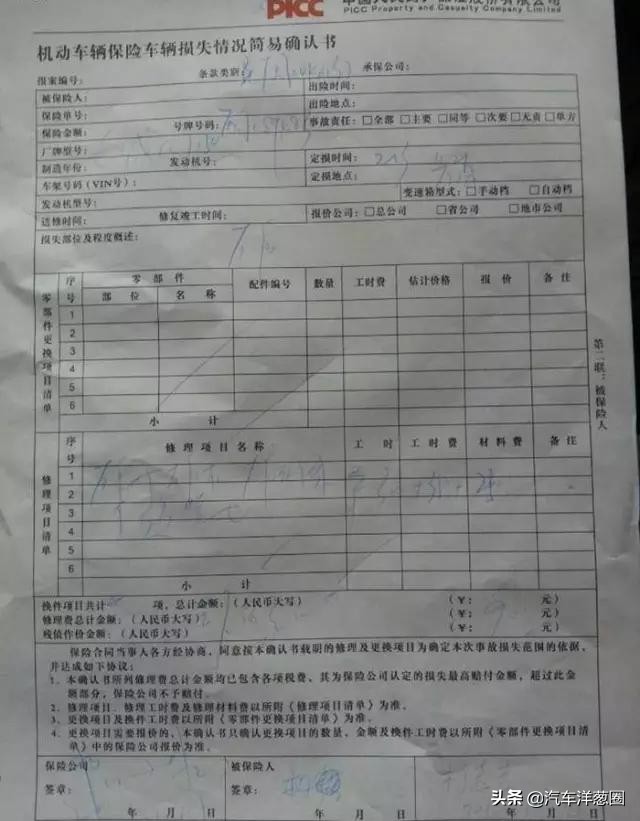 PICC
PICC Property and Casualty Company Limited
机动车辆保险车辆损失情况简易确认书
报案编号： 条款类别： 承保公司：
被保险人： 出险时间：
保险单号： 出险地点：
保险金额： 号牌号码： 事故责任：□全部 □主要 □同等 □次要 □无责 □单方
厂牌型号：
制造年份： 发动机号： 定损时间：
车架号码（VIN号）： 定损地点：
发动机型号： 变速箱型式：□手动档 □自动档
送修时间： 修复竣工时间： 报价公司：□总公司 □省公司 □地市公司
损失部位及程度概述：
零部件更换项目清单
序号 零部件 配件编号 数量 工时费 估计价格 报价 备注
部位 名称
1
2
3
4
5
6
小计
第二联：被保险人
修理项目清单
序号 修理项目名称 工时 工时费 材料费 备注
1
2
3
4
5
6
小计
换件项目共计 项，总计金额：（人民币大写） （¥： 元）
修理费总计金额：（人民币大写） （¥： 元）
残值作价金额：（人民币大写） （¥： 元）
保险合同当事人各方经协商，同意按本确认书载明的修理及更换项目为确定本次事故损失范围的依据，
并达成如下协议：
1、本确认书所列修理费总计金额均已包含各项税费，其为保险公司认定的损失最高赔付金额，超过此金
额部分，保险公司不予赔付。
2、修理项目、修理工时费及修理材料费以所附《修理项目清单》为准。
3、更换项目及换件工时费以所附《零部件更换项目清单》为准。
4、更换项目需要报价的，本确认书只确认更换项目的数量，金额及换件工时费以所附《零部件更换项目
清单》中的保险公司报价为准。
保险公司 被保险人
签章： 签章：
年 月 日 年 月 日 年 月 日
头条 @汽车洋葱圈